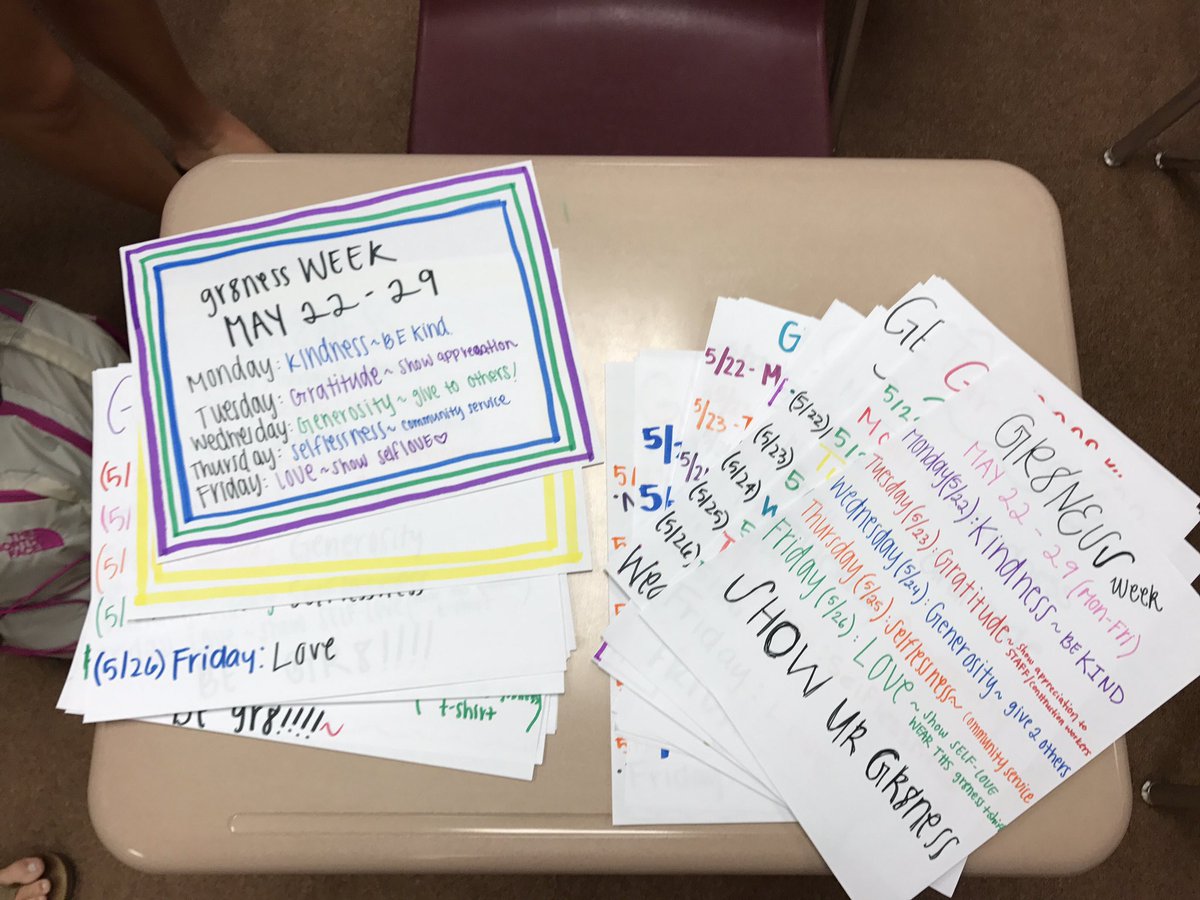 gr8ness WEEK
MAY 22 - 29
Monday: Kindness~BE Kind.
Tuesday: Gratitude~ show appreciation
Wednesday: Generosity~ give to others!
Thursday: selflessness~ community service
Friday: LOVE ~ show self love♡
G
(5/
(5/
(5/
(5/
(5/26) Friday: Love
Be gr8!!!!~
t-shirt
G
5/22-
5/23 -
(5/22)
(5/23)
(5/24)
(5/25)
(5/26)
GR8NESS week
MAY 22 - 29 (Mon-Fri)
Monday(5/22): Kindness~ BE KIND
Tuesday(5/23): Gratitude~ show appreciation to
STAFF/construction workers
Wednesday(5/24): Generosity~ give 2 others
Thursday(5/25): selflessness~ community service
Friday (5/26): LOVE ~ show SELF-LOVE
WEAR THS gr8ness t-shirt
SHOW UR GR8ness